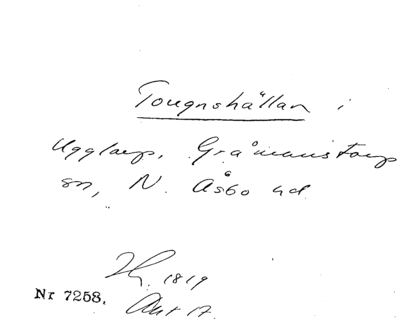 Tougnshällan i
Ugglarp, Gråmanstorp
sn, N. Åsbo hd.
1819
Nr 7258. Akt 17.